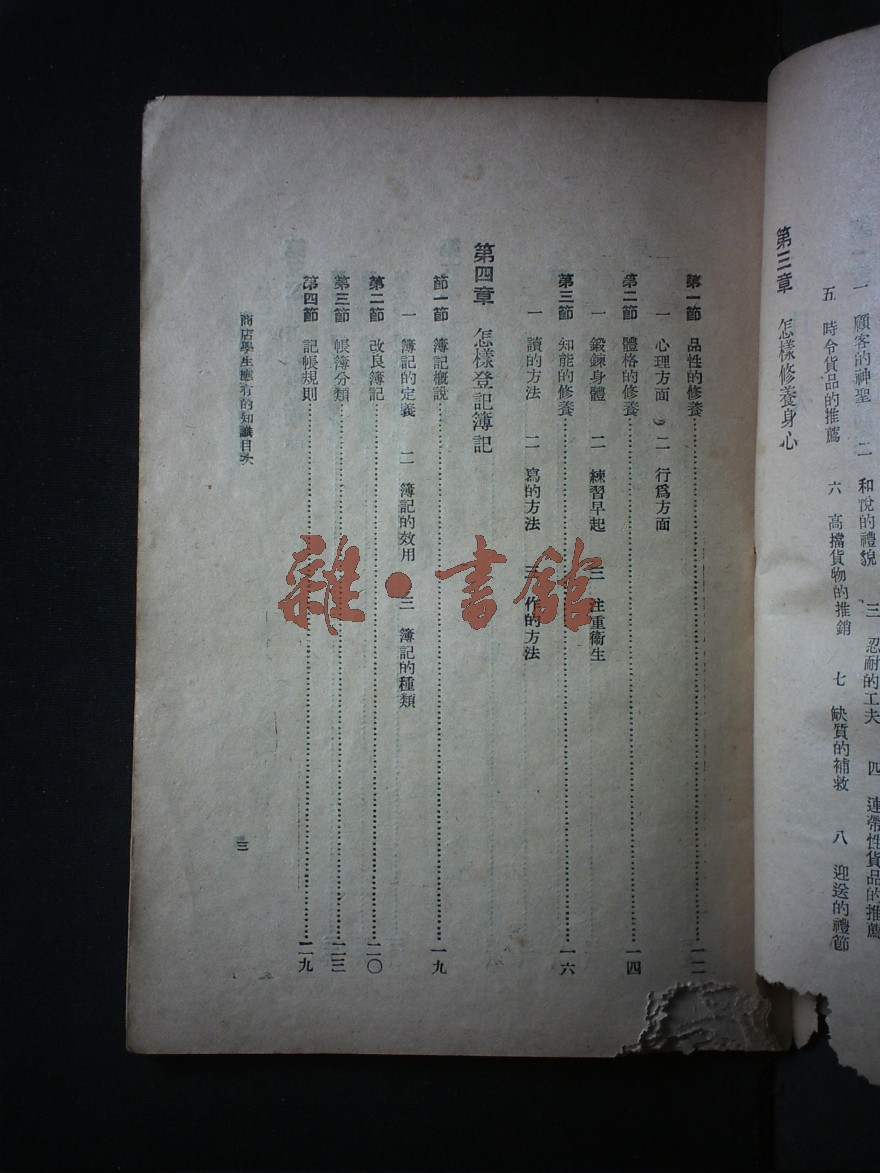 一 顧客的神聖 二 和悅的禮貌 三 忍耐的工夫 四 連帶性貨品的推薦
五 時令貨品的推薦 六 高擋貨物的推銷 七 缺質的補救 八 迎送的禮節
第三章 怎樣修養身心
第一節 品性的修養 一二
一 心理方面 二 行爲方面
第二節 體格的修養 一四
一 鍛鍊身體 二 練習早起 三 注重衞生
第三節 知能的修養 一六
一 讀的方法 二 寫的方法 三 作的方法
第四章 怎樣登記簿記
節一節 簿記槪說 一九
一 簿記的定義 二 簿記的效用 三 簿記的種類
第二節 改良簿記 二〇
第三節 帳簿分類 二三
第四節 記帳規則 二九
商店學生應有的知識目次
三
雜·書館